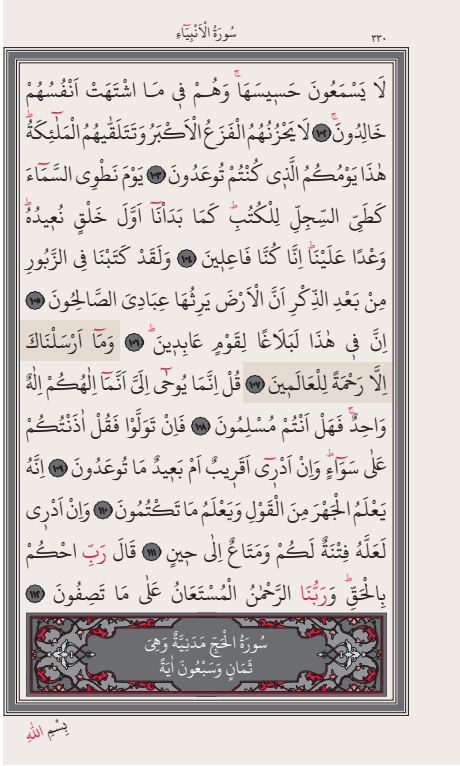 سُورَةُ الْاَنْبِيَٓاءِ
٣٣٠
لَا يَسْمَعُونَ حَسٖيسَهَاۚ وَهُمْ فٖي مَا اشْتَهَتْ اَنْفُسُهُمْ
خَالِدُونَۚ ﴿١٠٢﴾ لَا يَحْزُنُهُمُ الْفَزَعُ الْاَكْبَرُ وَتَتَلَقّٰيهُمُ الْمَلٰٓئِكَةُۜ
هٰذَا يَوْمُكُمُ الَّذٖي كُنْتُمْ تُوعَدُونَ ﴿١٠٣﴾ يَوْمَ نَطْوِي السَّمَٓاءَ
كَطَيِّ السِّجِلِّ لِلْكُتُبِۜ كَمَا بَدَأْنَٓا اَوَّلَ خَلْقٍ نُعٖيدُهُۜ
وَعْدًا عَلَيْنَاۜ اِنَّا كُنَّا فَاعِلٖينَ ﴿١٠٤﴾ وَلَقَدْ كَتَبْنَا فِي الزَّبُورِ
مِنْ بَعْدِ الذِّكْرِ اَنَّ الْاَرْضَ يَرِثُهَا عِبَادِيَ الصَّالِحُونَ ﴿١٠٥﴾
اِنَّ فٖي هٰذَا لَبَلَاغًا لِقَوْمٍ عَابِدٖينَۜ ﴿١٠٦﴾ وَمَٓا اَرْسَلْنَاكَ
اِلَّا رَحْمَةً لِلْعَالَمٖينَ ﴿١٠٧﴾ قُلْ اِنَّمَا يُوحٰٓى اِلَيَّ اَنَّمَٓا اِلٰهُكُمْ اِلٰهٌ
وَاحِدٌۚ فَهَلْ اَنْتُمْ مُسْلِمُونَ ﴿١٠٨﴾ فَاِنْ تَوَلَّوْا فَقُلْ اٰذَنْتُكُمْ
عَلٰى سَوَٓاءٍۜ وَاِنْ اَدْرٖٓي اَقَرٖيبٌ اَمْ بَعٖيدٌ مَا تُوعَدُونَ ﴿١٠٩﴾ اِنَّهُ
يَعْلَمُ الْجَهْرَ مِنَ الْقَوْلِ وَيَعْلَمُ مَا تَكْتُمُونَ ﴿١١٠﴾ وَاِنْ اَدْرٖي
لَعَلَّهُ فِتْنَةٌ لَكُمْ وَمَتَاعٌ اِلٰى حٖينٍ ﴿١١١﴾ قَالَ رَبِّ احْكُمْ
بِالْحَقِّۜ وَرَبُّنَا الرَّحْمٰنُ الْمُسْتَعَانُ عَلٰى مَا تَصِفُونَ ﴿١١٢﴾
سُورَةُ الْحَجِّ مَدَنِيَّةٌ وَهِيَ
ثَمَانٍ وَسَبْعُونَ اٰيَةً
بِسْمِ اللّٰهِ